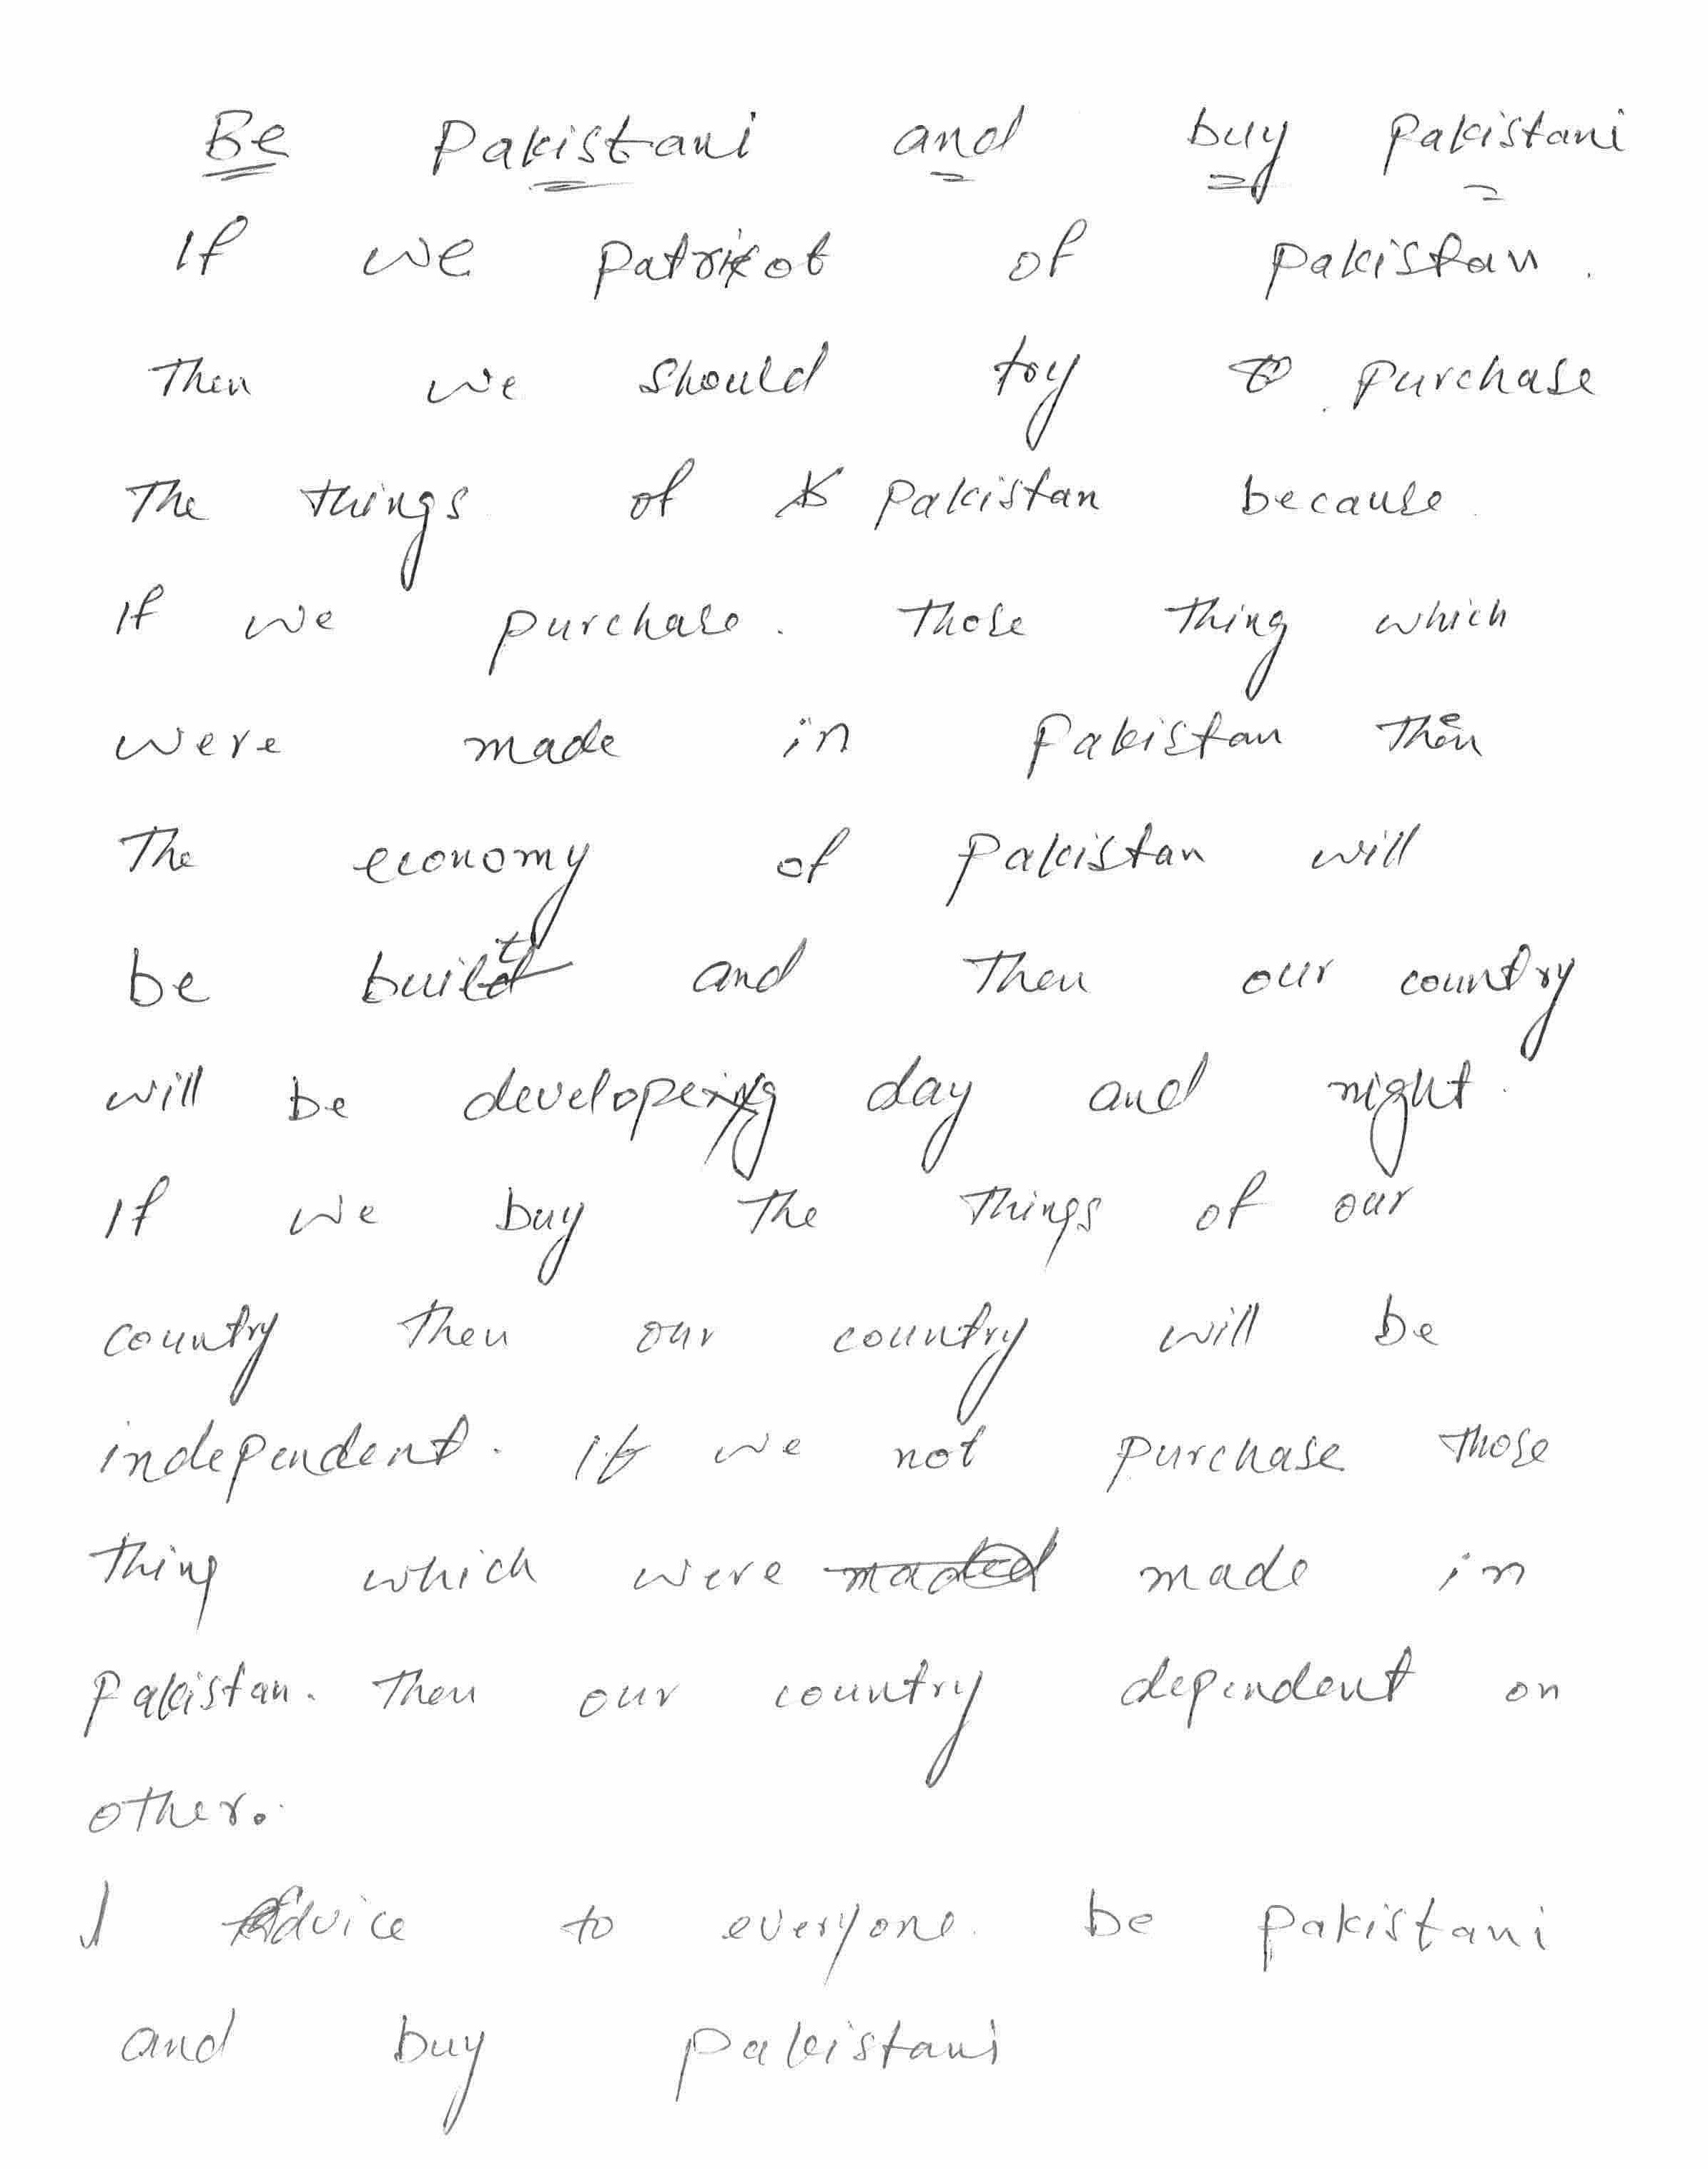 Be Pakistani and buy Pakistani
If we patriot of Pakistan.
Then we should try to purchase
The things of Pakistan because
If we purchase. Those thing which
were made in Pakistan Then
The economy of Pakistan will
be built and Then our country
will be developing day and night.
If we buy The Things of our
country Then our country will be
independent. If we not purchase Those
Thing which were made in
Pakistan. Then our country dependent on
other.
I Advice to everyone. be Pakistani
and buy Pakistani